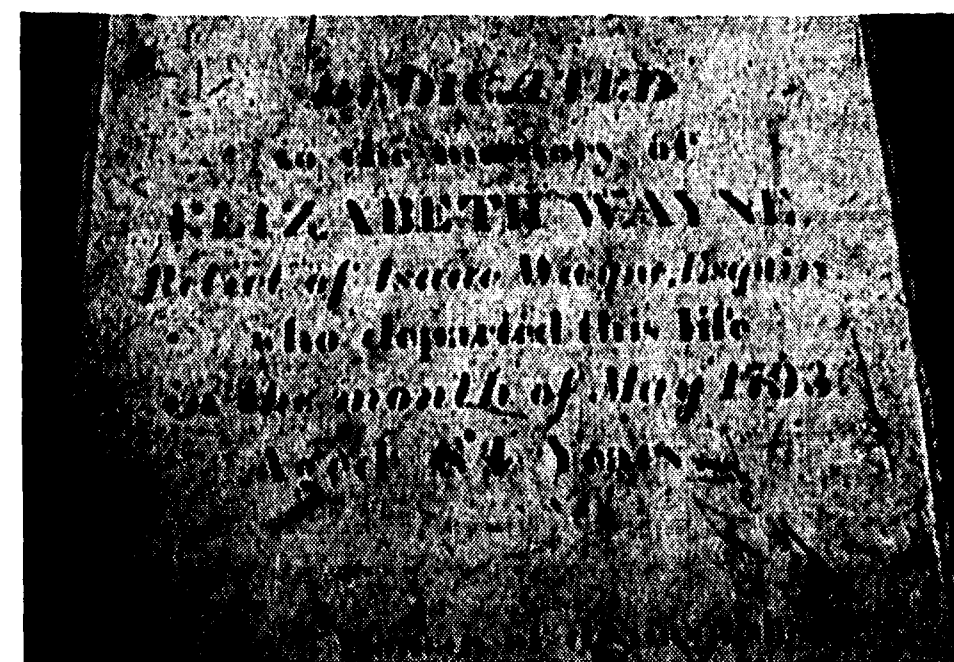 DEDICATED
to the memory of
ELIZABETH WAYNE,
Relict of Isaac Wayne, Esquire
who departed this life
in the month of May 1793
Aged 84 Years